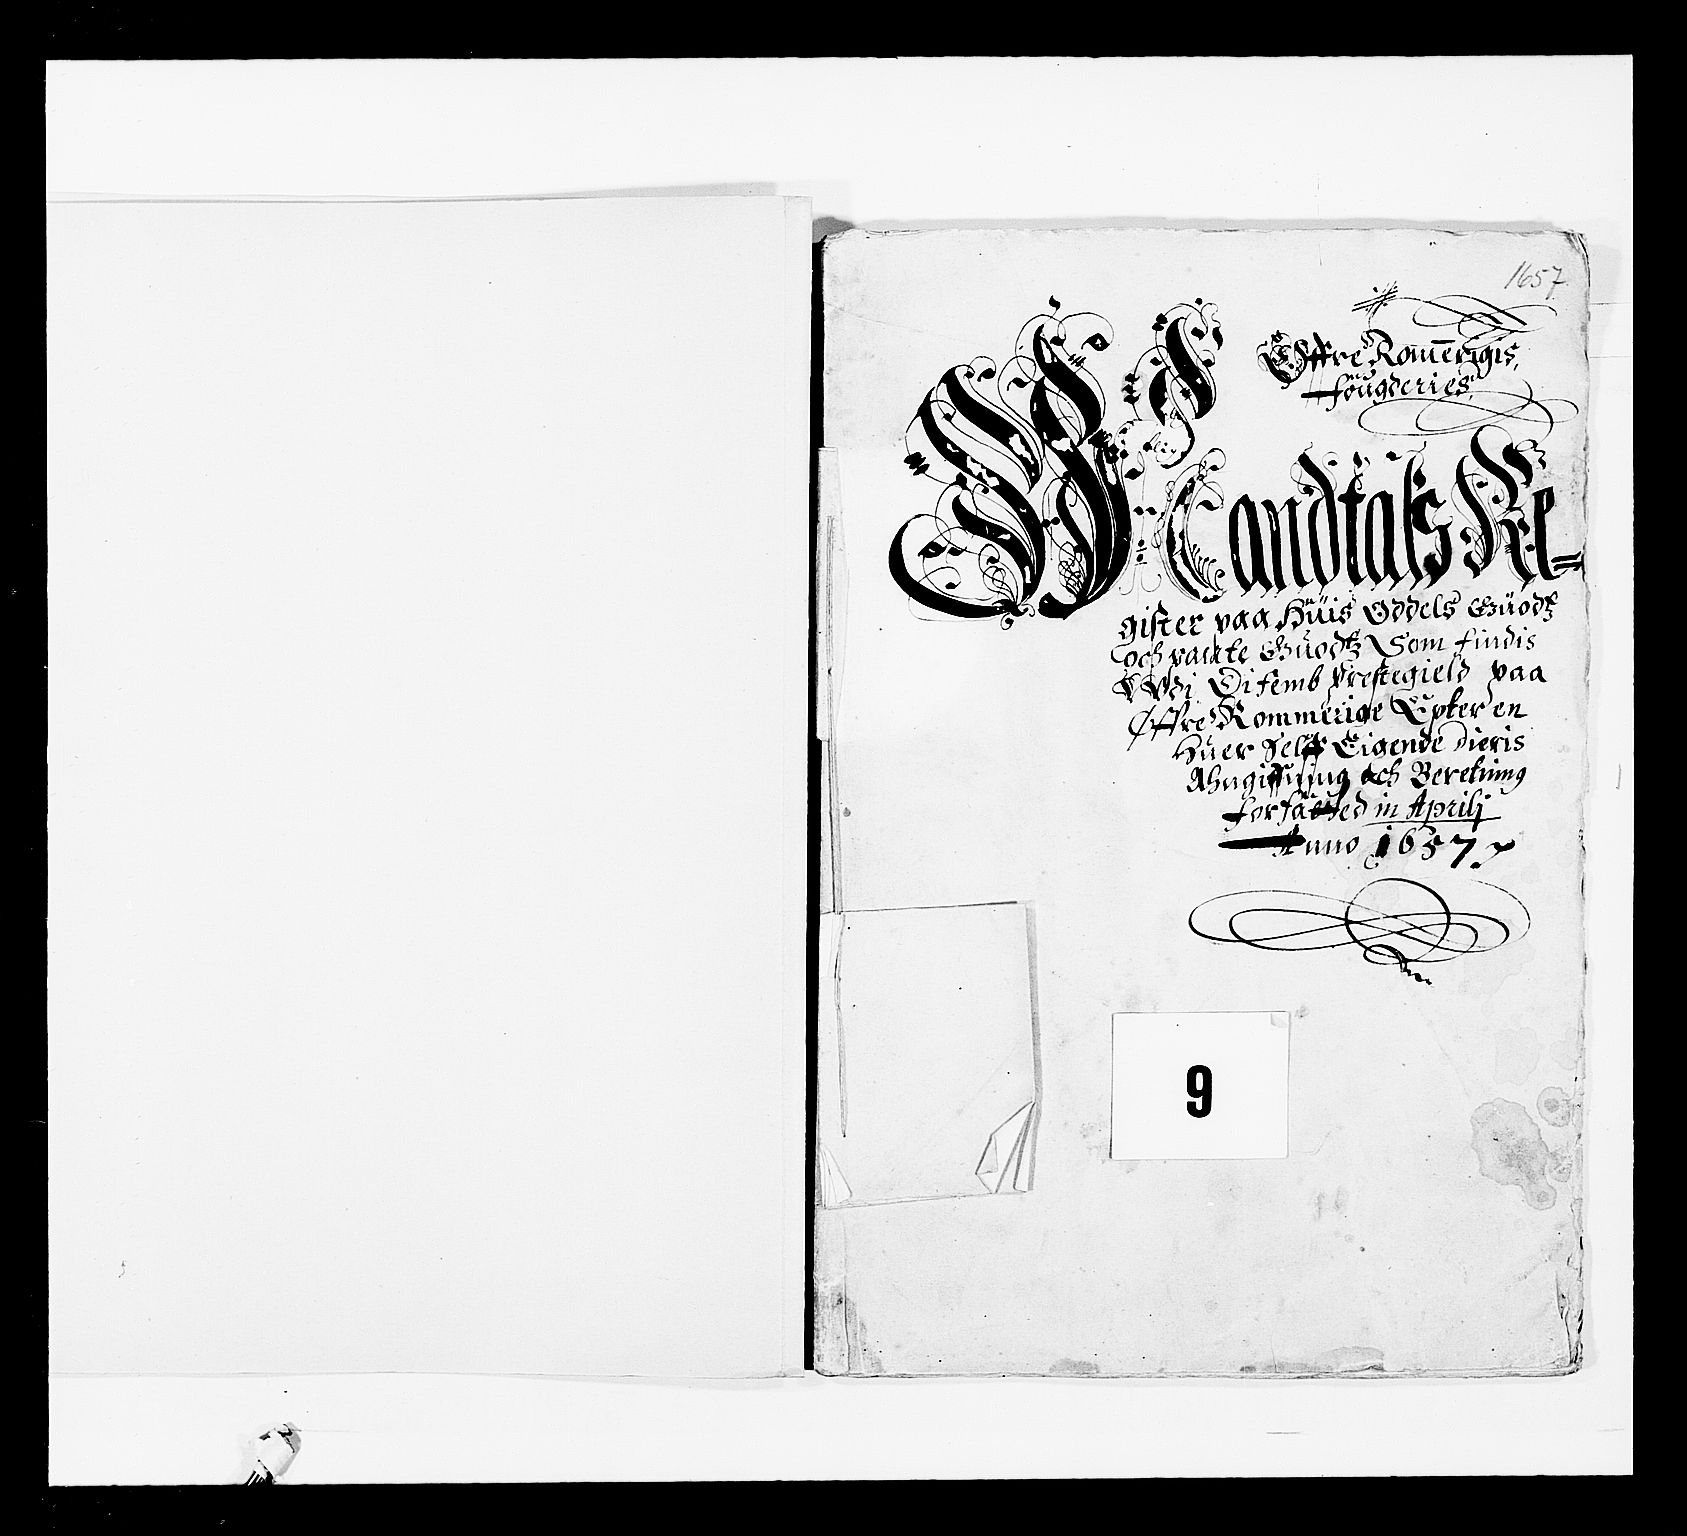 1657
Øffre Romerigis,
fougderies,
Mandtals Re=
gister paa Huis Oddels Guodtz
och pantte Guodtz Som findis
Vdi Difemb prestegield paa
Øffre Rommerige Epter en
Huer Selff Eigende dieris
Ahngiffning och Beretning
forfatted in Aprilj
Anno 1657
9